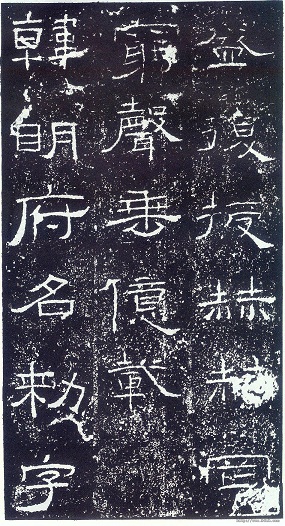 盛復授赫赫罔
窮聲垂億載
韓明府名勑字